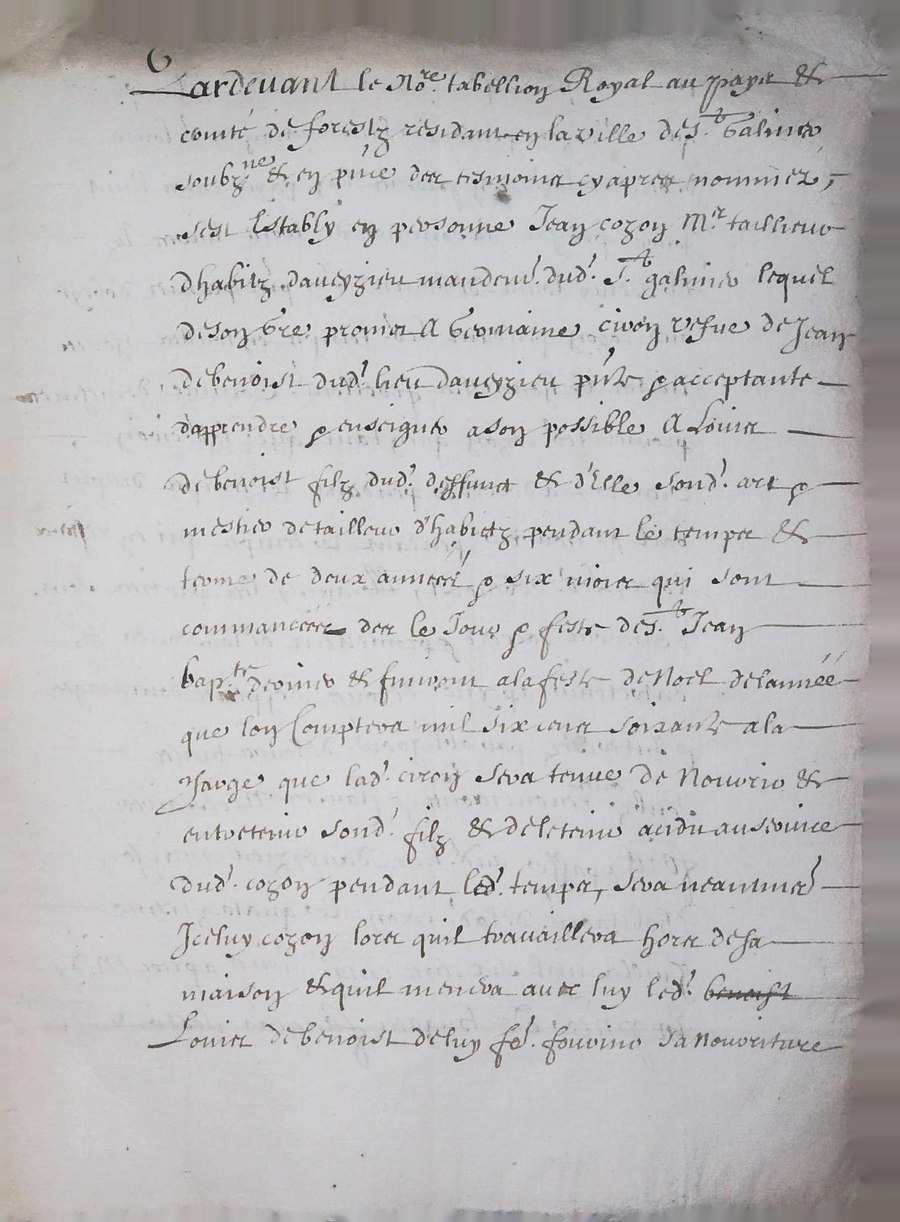 Pardevant le No.re tabellion Royal au pays &
comté de forestz residant en la ville de S.t Galmier
soubz.ne & en p̃nce des tesmoins cy apres nommez,
sest Estably en personne Jean cozon M.r tailleur
dhabitz daveyzieu mandem.t dud.t S.t galmier lequel
de son gre promet A Germaine ciron vefue de Jean
de benoist dud.t lieu daveyzieu p̃nte & acceptante
dapprendre & enseigner a son possible A Louis
de benoist filz dud.t deffunct & d'Elle sond.t art &
mestier de tailleur d'habitz pendant le temps &
terme de deux années & six mois qui sont
commancées des le Jour & feste de S.t Jean
bap.te dernier & finiront a la feste de Noel de lannée
que lon Comptera mil six cens soixante a la
charge que lad.t ciron sera tenue de Nourrir &
entretenir sond.t filz & de le tenir acidu au service
dud.t cozon pendant led.t temps, sera neantmoins
Jceluy cozon lors quil travaillera hors de sa
maison & quil menera avec luy led.t benoist
Louis de benoist de luy fe.t fournir sa nourriture